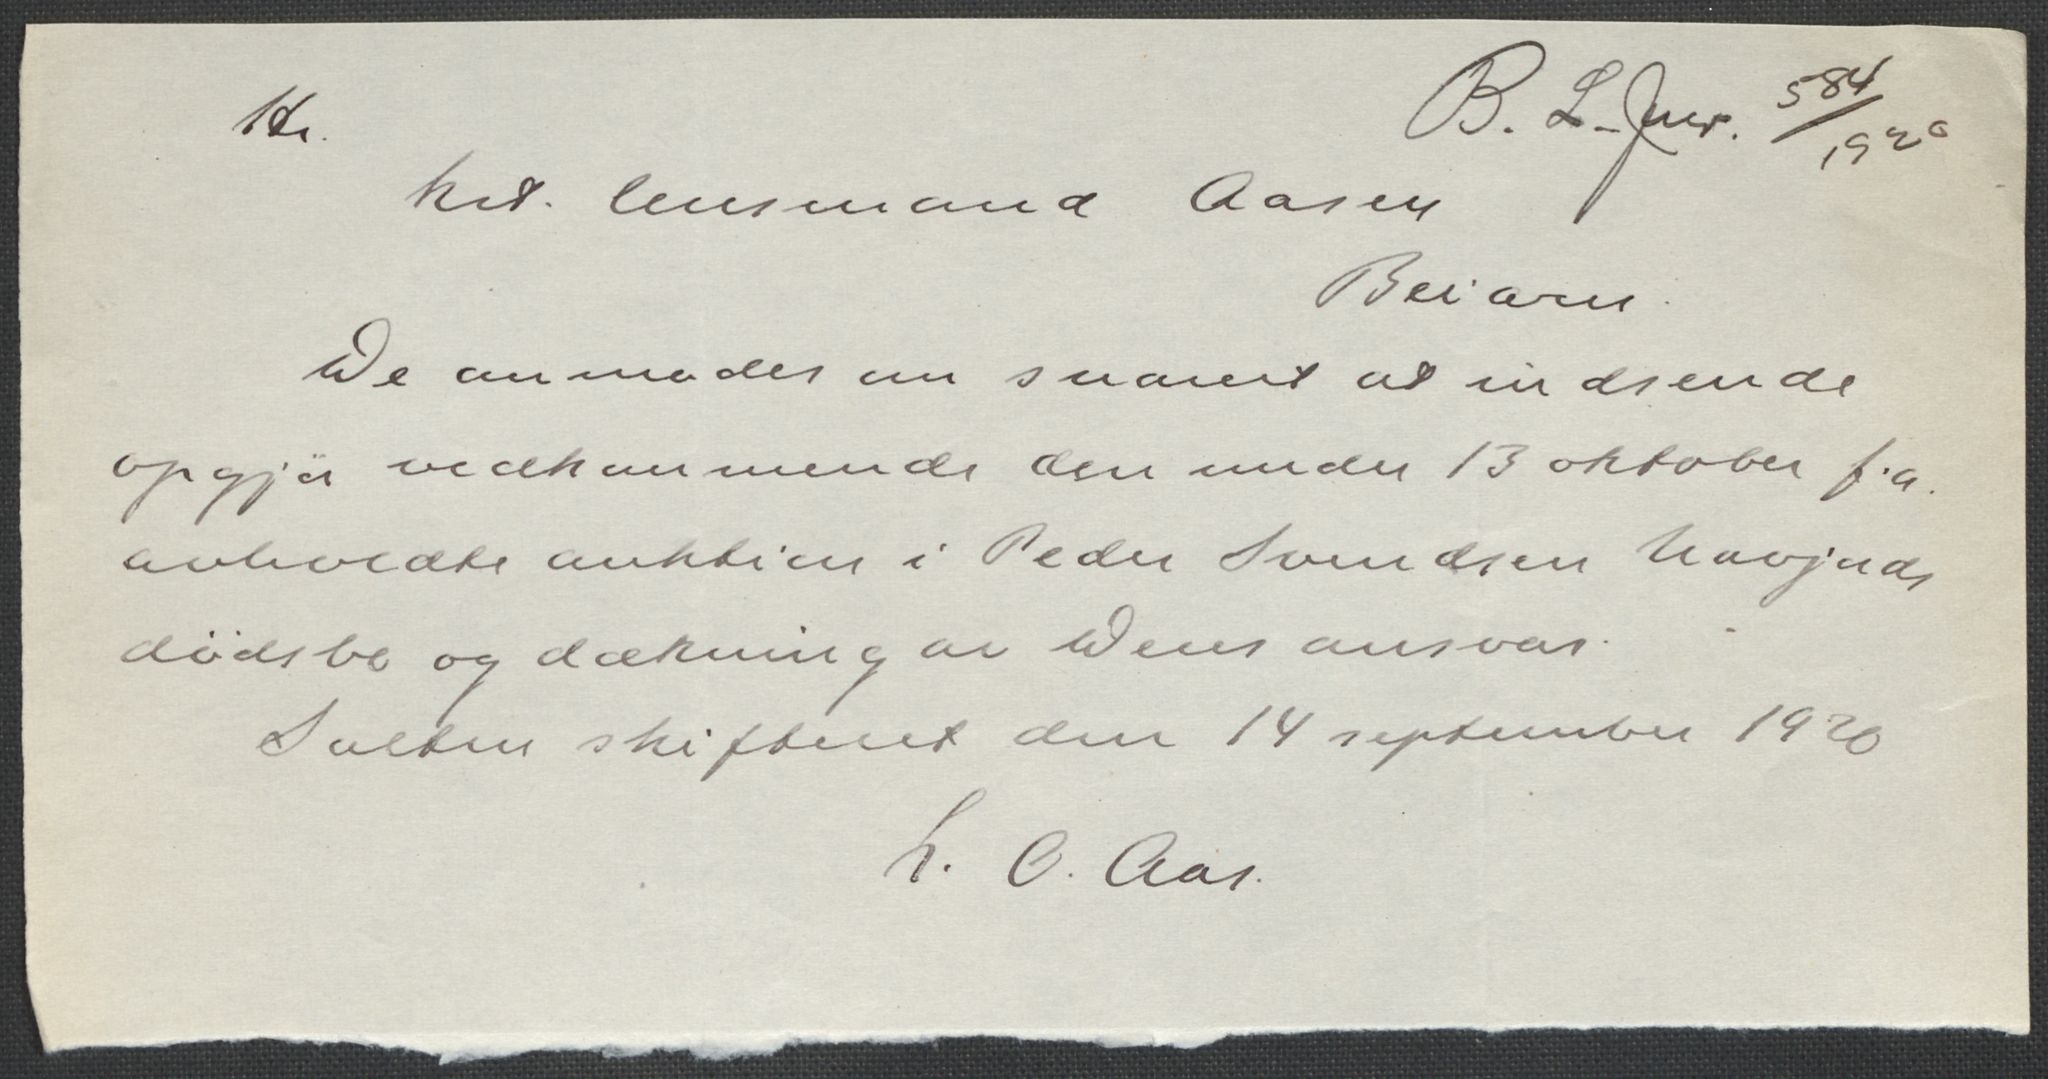 Hr.
B. L-Jur. 584/1920
kst. lensmand Aasen
Beiarn.
De anmodes om snarest at indsende
opgjör vedkommende den under 13 oktober f.a.
avholdte auktion i Peder Svendsen
dödsbo og dækning av Deres ansvar.
Salten skifteret den 14 september 1920
O. Aas.